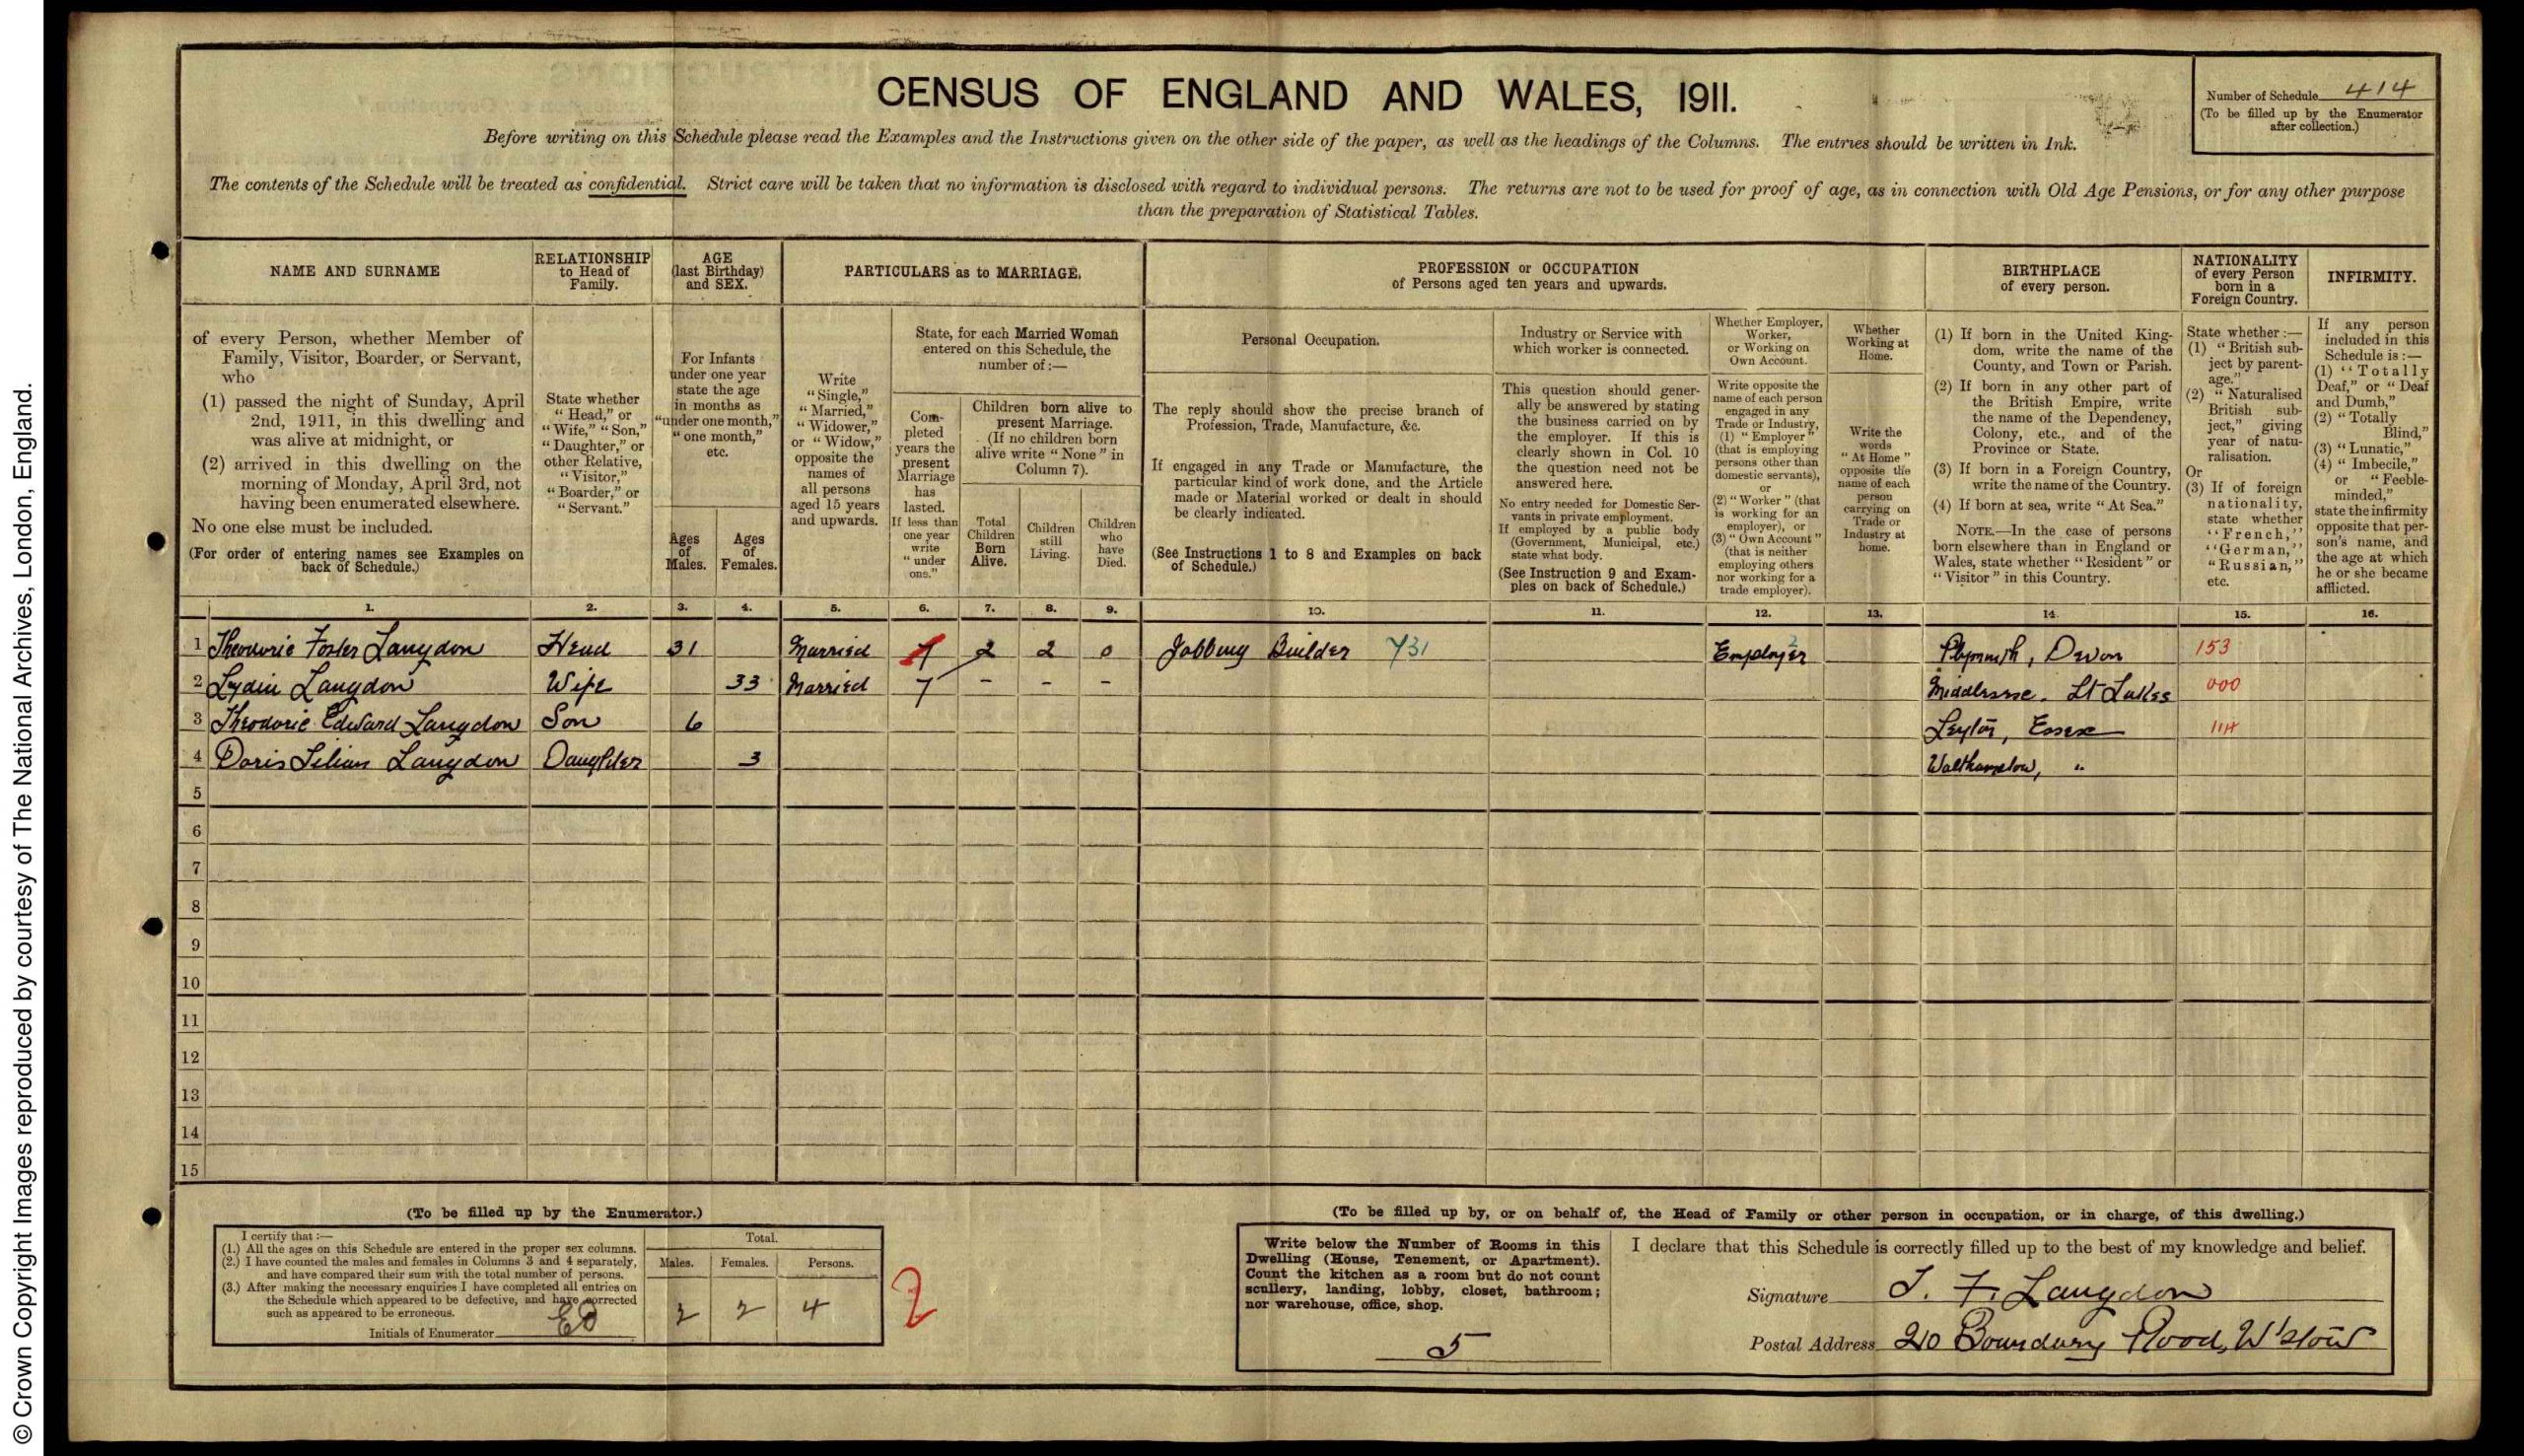 © Crown Copyright Images reproduced by courtesy of The National Archives, London, England.
CENSUS OF ENGLAND AND WALES, 1911.
Number of Schedule 414
(To be filled up by the Enumerator
after collection.)
Before writing on this Schedule please read the Examples and the Instructions given on the other side of the paper, as well as the headings of the Columns. The entries should be written in Ink.
The contents of the Schedule will be treated as confidential. Strict care will be taken that no information is disclosed with regard to individual persons. The returns are not to be used for proof of age, as in connection with Old Age Pensions, or for any other purpose
than the preparation of Statistical Tables.
NAME AND SURNAME
of every Person, whether Member of
Family, Visitor, Boarder, or Servant,
who
(1) passed the night of Sunday, April
2nd, 1911, in this dwelling and
was alive at midnight, or
(2) arrived in this dwelling on the
morning of Monday, April 3rd, not
having been enumerated elsewhere.
No one else must be included.
(For order of entering names see Examples on
back of Schedule.)
RELATIONSHIP
to Head of
Family.
State whether
"Head," or
"Wife," "Son,"
"Daughter," or
other Relative,
"Visitor,"
"Boarder," or
"Servant."
AGE
(last Birthday)
and SEX.
For Infants
under one year
state the age
in months as
"under one month,"
"one month,"
etc.
Ages
of
Males.
Ages
of
Females.
PARTICULARS as to MARRIAGE.
Write
"Single,"
"Married,"
"Widower,"
or "Widow,"
opposite the
names of
all persons
aged 15 years
and upwards.
State, for each Married Woman
entered on this Schedule, the
number of:—
Com-
pleted
years the
present
Marriage
has
lasted.
If less than
one year
write
"under
one."
Children born alive to
present Marriage.
(If no children born
alive write "None" in
Column 7).
Total
Children
Born
Alive.
Children
still
Living.
Children
who
have
Died.
PROFESSION or OCCUPATION
of Persons aged ten years and upwards.
Personal Occupation.
The reply should show the precise branch of
Profession, Trade, Manufacture, &c.
If engaged in any Trade or Manufacture, the
particular kind of work done, and the Article
made or Material worked or dealt in should
be clearly indicated.
(See Instructions 1 to 8 and Examples on back
of Schedule.)
Industry or Service with
which worker is connected.
This question should gener-
ally be answered by stating
the business carried on by
the employer. If this is
clearly shown in Col. 10
the question need not be
answered here.
No entry needed for Domestic Ser-
vants in private employment.
If employed by a public body
(Government, Municipal, etc.)
state what body.
(See Instruction 9 and Exam-
ples on back of Schedule.)
Whether Employer,
Worker,
or Working on
Own Account.
Write opposite the
name of each person
engaged in any
Trade or Industry,
(1) "Employer"
(that is employing
persons other than
domestic servants),
or
(2) "Worker" (that
is working for an
employer), or
(3) "Own Account"
(that is neither
employing others
nor working for a
trade employer).
Whether
Working at
Home.
Write the
words
"At Home"
opposite the
name of each
person
carrying on
Trade or
Industry at
home.
BIRTHPLACE
of every person.
(1) If born in the United King-
dom, write the name of the
County, and Town or Parish.
(2) If born in any other part of
the British Empire, write
the name of the Dependency,
Colony, etc., and of the
Province or State.
(3) If born in a Foreign Country,
write the name of the Country.
(4) If born at sea, write "At Sea."
NOTE.—In the case of persons
born elsewhere than in England or
Wales, state whether "Resident" or
"Visitor" in this Country.
NATIONALITY
of every Person
born in a
Foreign Country.
State whether:—
(1) "British sub-
ject by parent-
age."
(2) "Naturalised
British sub-
ject," giving
year of natu-
ralisation.
Or
(3) If of foreign
nationality,
state whether
"French,"
"German,"
"Russian,"
etc.
INFIRMITY.
If any person
included in this
Schedule is:—
(1) "Totally
Deaf," or "Deaf
and Dumb,"
(2) "Totally
Blind,"
(3) "Lunatic,"
(4) "Imbecile,"
or "Feeble-
minded,"
state the infirmity
opposite that per-
son's name, and
the age at which
he or she became
afflicted.
1. 2. 3. 4. 5. 6. 7. 8. 9. 10. 11. 12. 13. 14. 15. 16.
1 Theodoric Foster Langdon Head 31 Married 7 2 2 0 Jobbing Builder 731 Employer 2 Plymouth, Devon 153
2 Lydia Langdon Wife 33 Married 7 - - - Middlesex. St Lukes 000
3 Theodoric Edward Langdon Son 6 Leyton, Essex 114
4 Doris Lilian Langdon Daughter 3 Walthamstow, "
5
6
7
8
9
10
11
12
13
14
15
(To be filled up by the Enumerator.)
I certify that:—
(1.) All the ages on this Schedule are entered in the proper sex columns.
(2.) I have counted the males and females in Columns 3 and 4 separately,
and have compared their sum with the total number of persons.
(3.) After making the necessary enquiries I have completed all entries on
the Schedule which appeared to be defective, and have corrected
such as appeared to be erroneous.
Initials of Enumerator
Total.
Males. Females. Persons.
2 2 4
2
(To be filled up by, or on behalf of, the Head of Family or other person in occupation, or in charge, of this dwelling.)
Write below the Number of Rooms in this
Dwelling (House, Tenement, or Apartment).
Count the kitchen as a room but do not count
scullery, landing, lobby, closet, bathroom;
nor warehouse, office, shop.
5
I declare that this Schedule is correctly filled up to the best of my knowledge and belief.
Signature T. F. Langdon
Postal Address 210 Boundary Road, W'stow